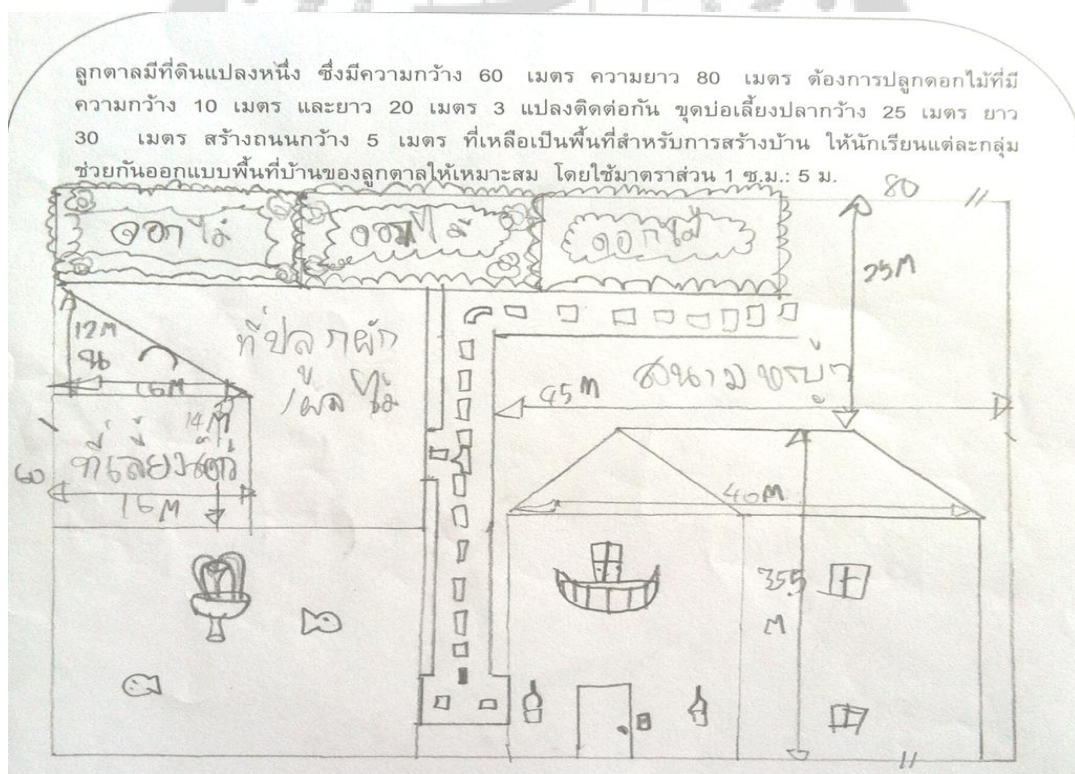 ลูกตาลมีที่ดินแปลงหนึ่ง ซึ่งมีความกว้าง 60 เมตร ความยาว 80 เมตร ต้องการปลูกดอกไม้ที่มี
ความกว้าง 10 เมตร และยาว 20 เมตร 3 แปลงติดต่อกัน ขุดบ่อเลี้ยงปลากว้าง 25 เมตร ยาว
30 เมตร สร้างถนนกว้าง 5 เมตร ที่เหลือเป็นพื้นที่สำหรับการสร้างบ้าน ให้นักเรียนแต่ละกลุ่ม
ช่วยกันออกแบบพื้นที่บ้านของลูกตาลให้เหมาะสม โดยใช้มาตราส่วน 1 ซ.ม.: 5 ม.
80
ดอกไม้ ดอกไม้ ดอกไม้
25M
12M
ที่ปลูกผัก
ผลไม้
16M
สนามหญ้า
45M
14M
ที่เลี้ยงสัตว์
60
16M
40M
35.5
M